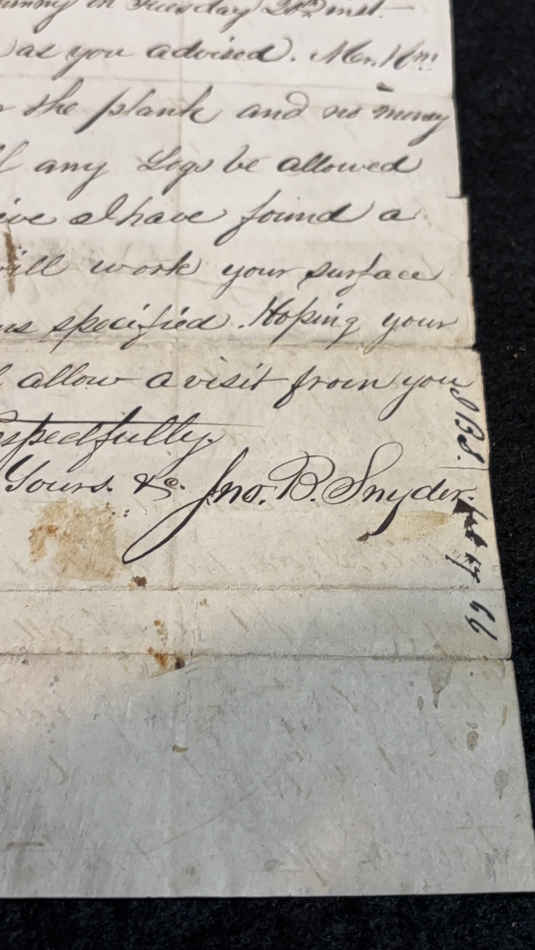 in Tuesday 20th inst. —
as you advised. Mr. Wm.
the plank and no money
any Logs be allowed
I have found a
will work your surface
specified. Hoping your
allow a visit from you
espectfully,
Yours. &c. Jno. B. Snyder.